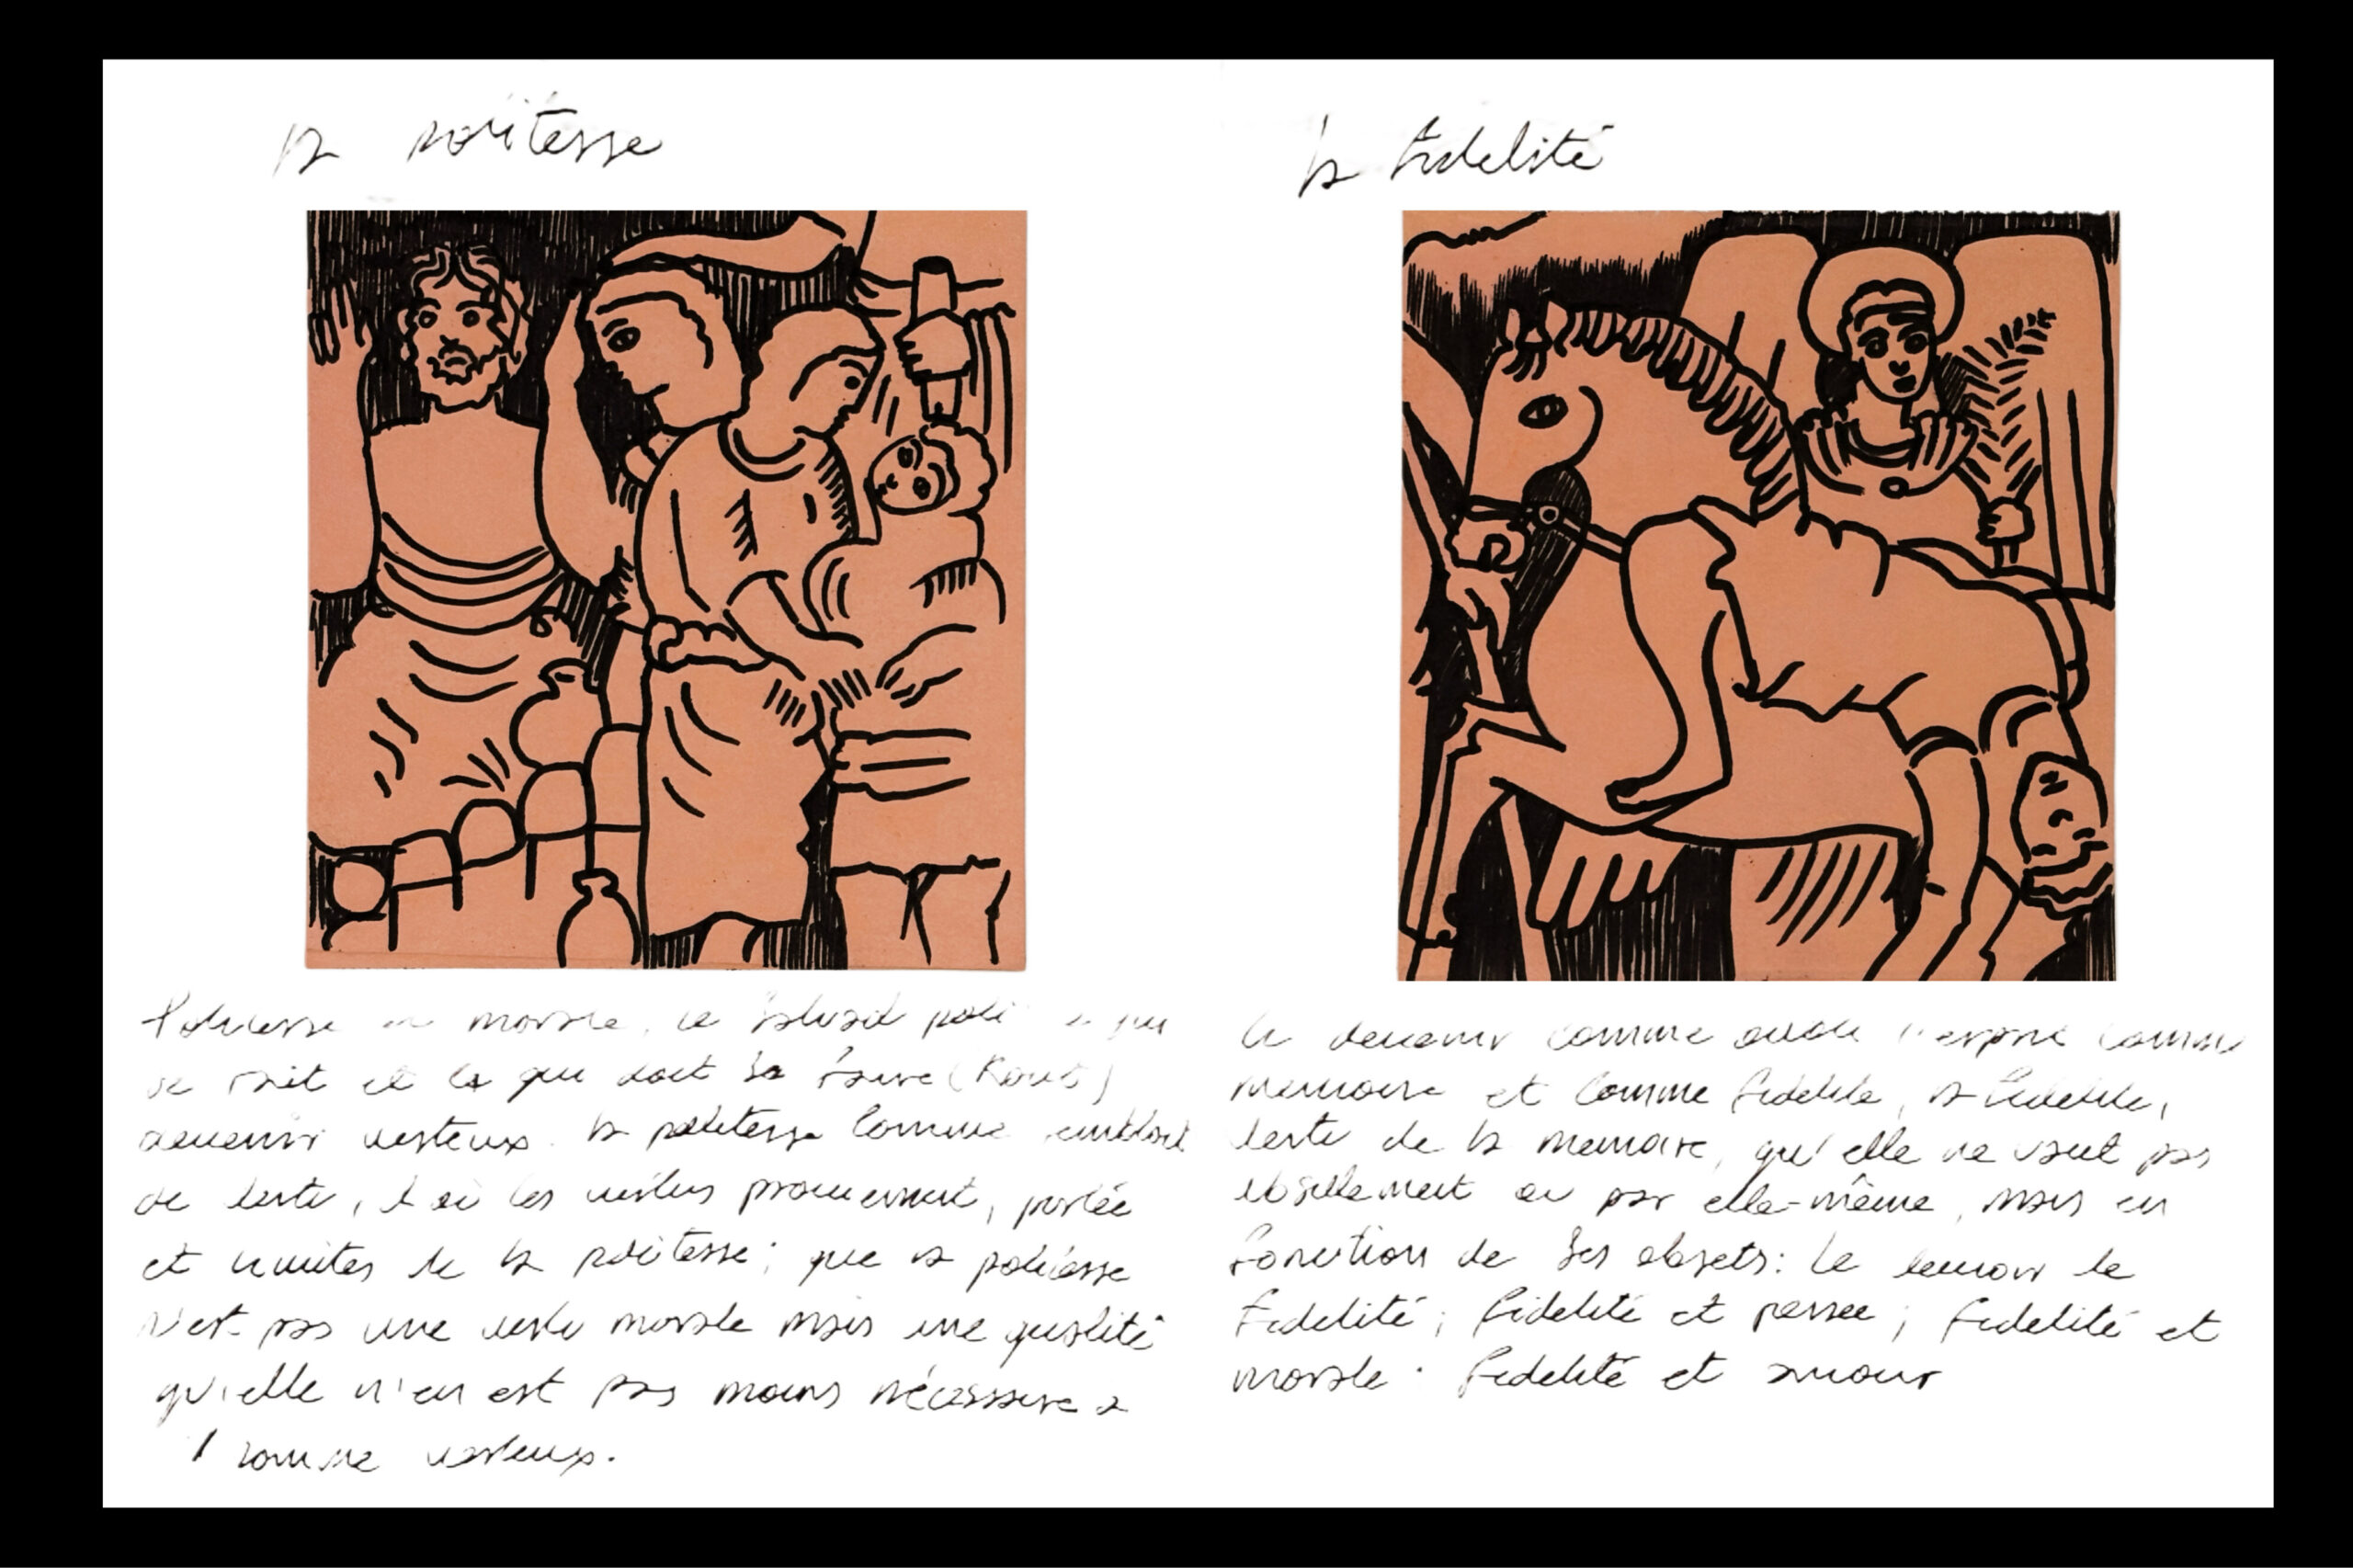 la politesse
Politesse et morale, le salaud poli : ce qui
se fait et ce qui doit se faire (Kant)
devenir vertueux. la politesse comme semblant
de vertu, d'où les vertus proviennent, portée
et limites de la politesse ; que la politesse
n'est pas une vertu morale mais une qualité
qu'elle n'en est pas moins nécessaire à
l'homme vertueux.
la fidelité
Le devenir comme oubli l'esprit comme
memoire et comme fidelite, la fidelite,
vertu de la memoire, qu'elle ne vaut pas
ou par elle-même, mais en
fonction de ses objets: Le devoir de
fidelité ; fidelité et pensee ; fidelité et
morale. fidelité et amour